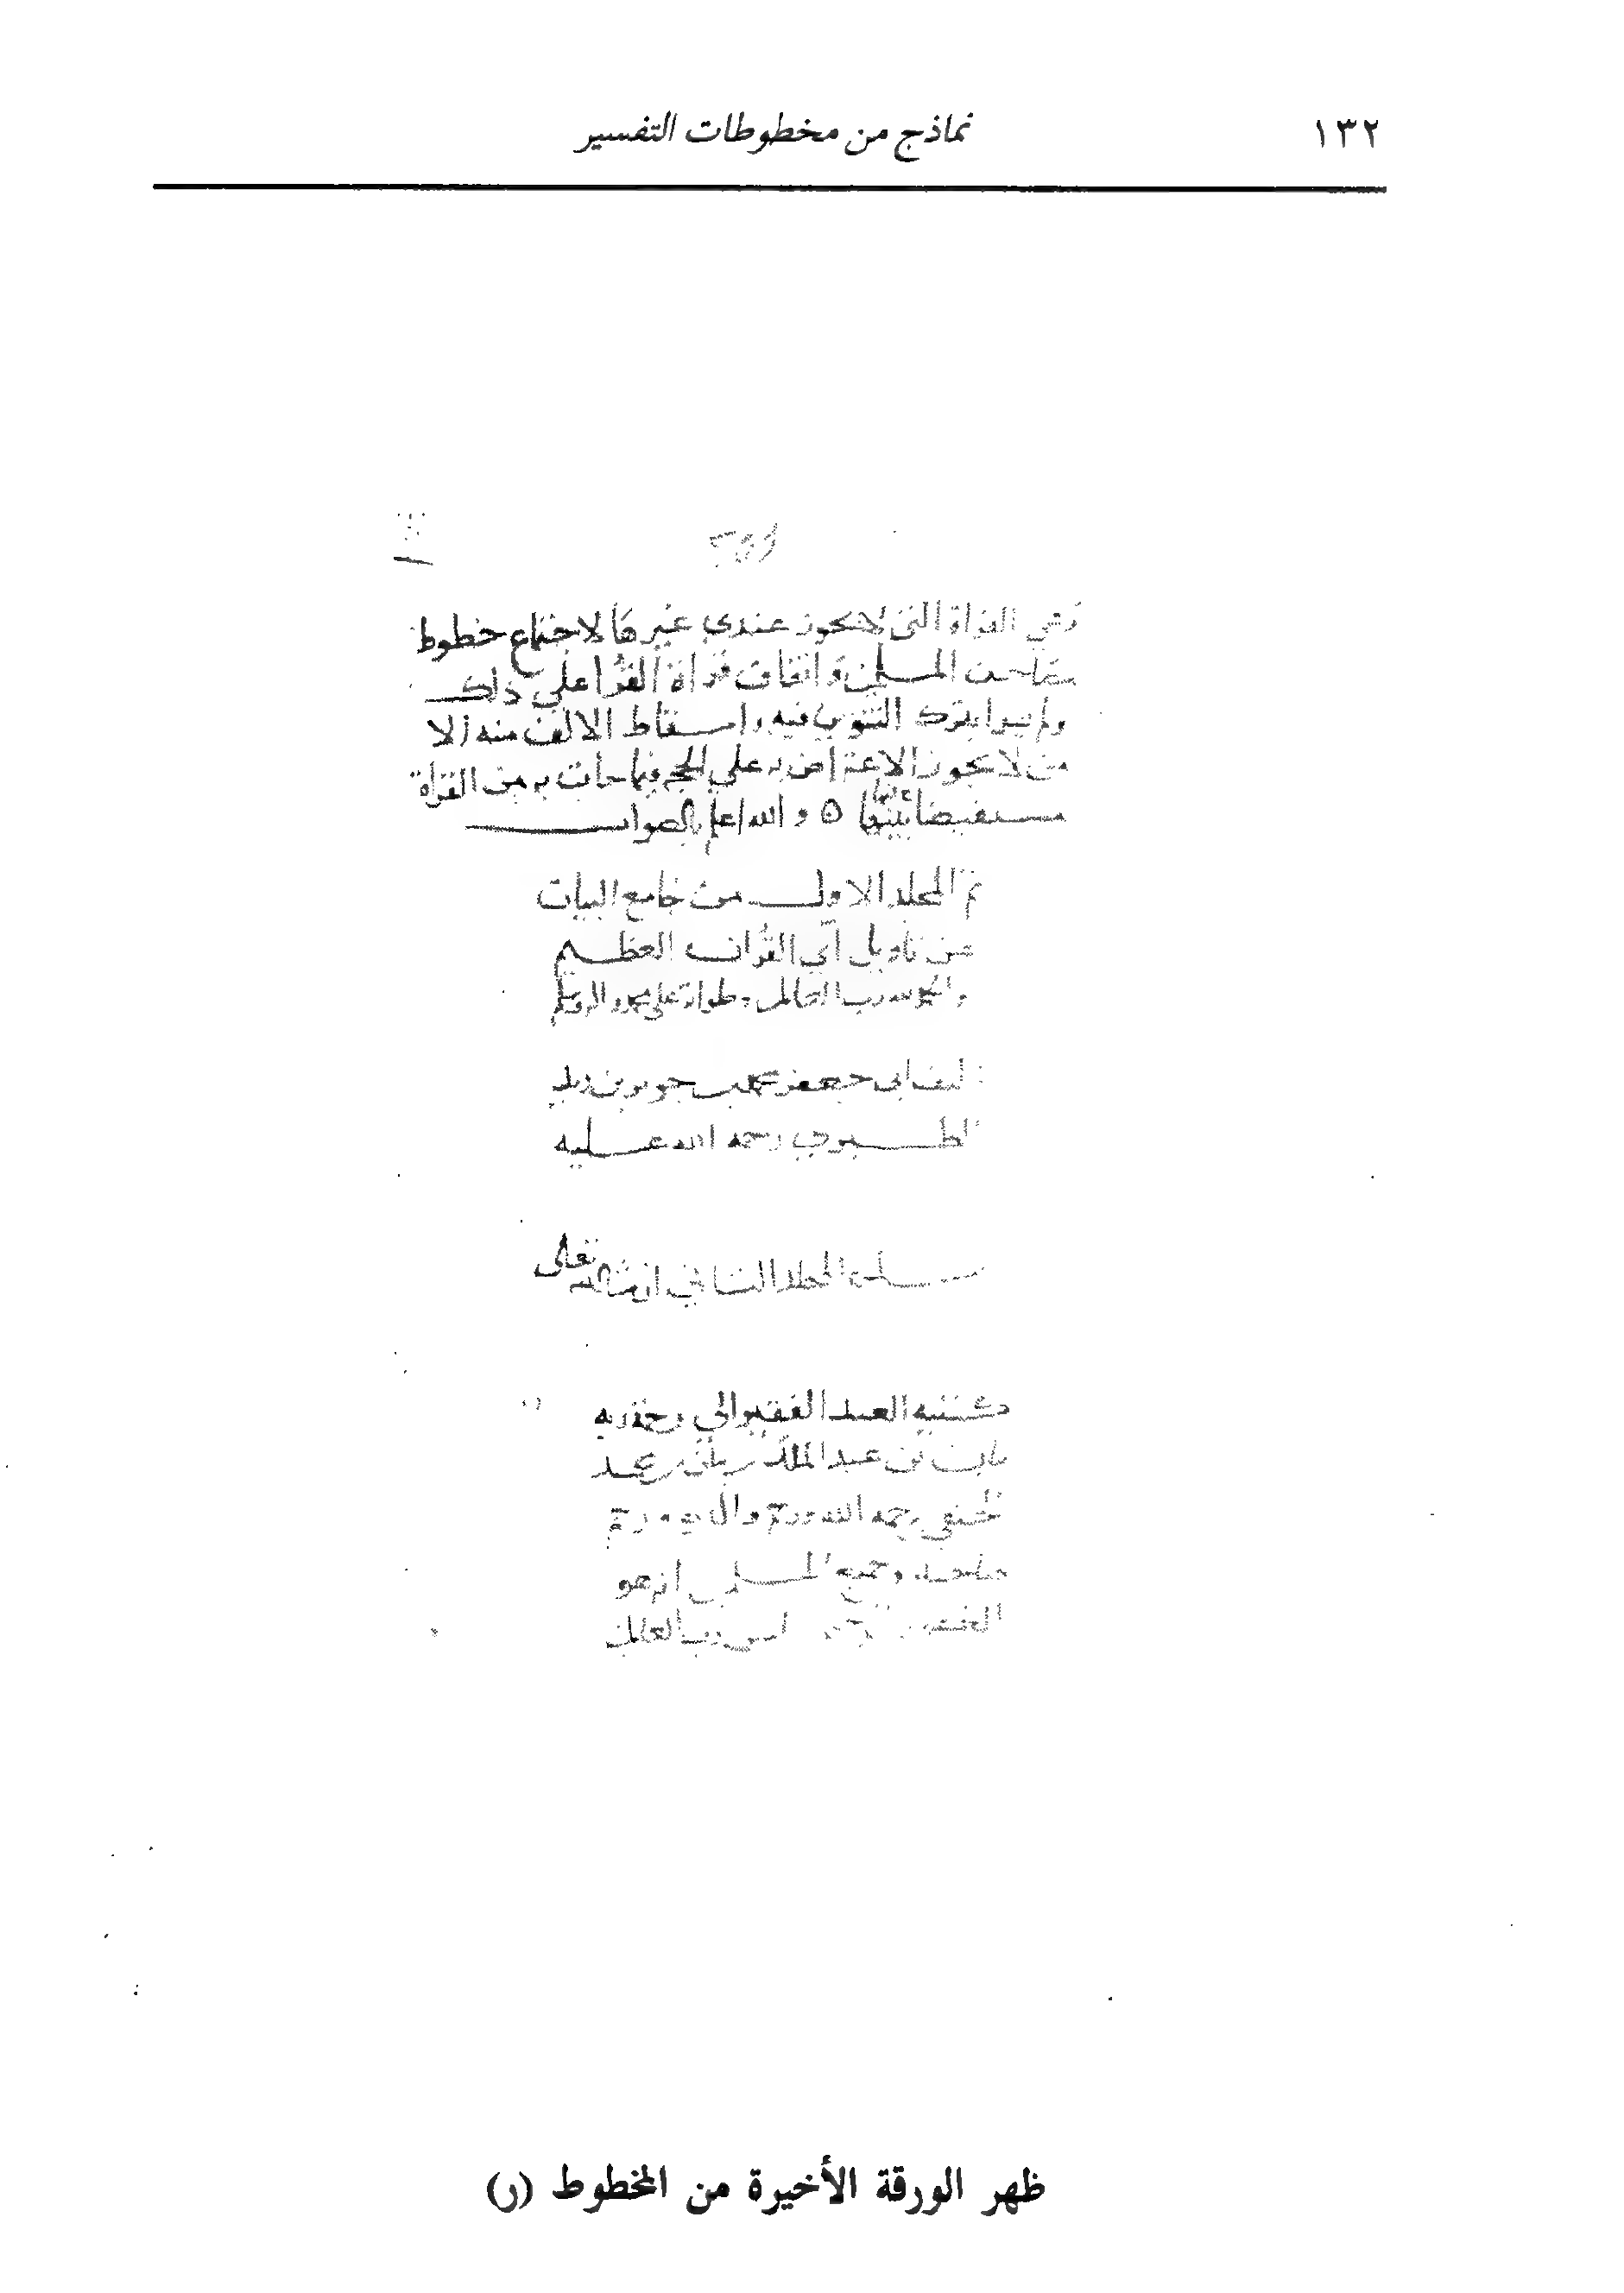 ١٣٢
نماذج من مخطوطات التفسير
وهي القراة التي لا يجوز عندي غيرها لاجتماع خطوط
مصاحف المسلمين واتفاق قراة القرا على ذلك
ولم يقرا بترك التنوين فيه واسقاط الالف منه الا
من لا يجوز الاعتراض به على الحجه فيما جات به من القراة
مستفيضا بينها ٥ والله اعلم بالصواب
تم المجلد الاول من جامع البيان
عن تاويل آي القران العظيم
والحمد لله رب العالمين وصلواته على محمد واله وسلم
تاليف ابي جعفر محمد بن جرير بن يزيد
الطبري رحمه الله عليه
المجلد الثاني ان شا الله تعالى
كتبه العبد الفقير الى رحمة ربه
بن عبد الملك بن محمد
الحنفي رحمه الله ورحم والديه ورحم
وجميع المسلمين
رب العالمين
ظهر الورقة الأخيرة من المخطوط (ر)